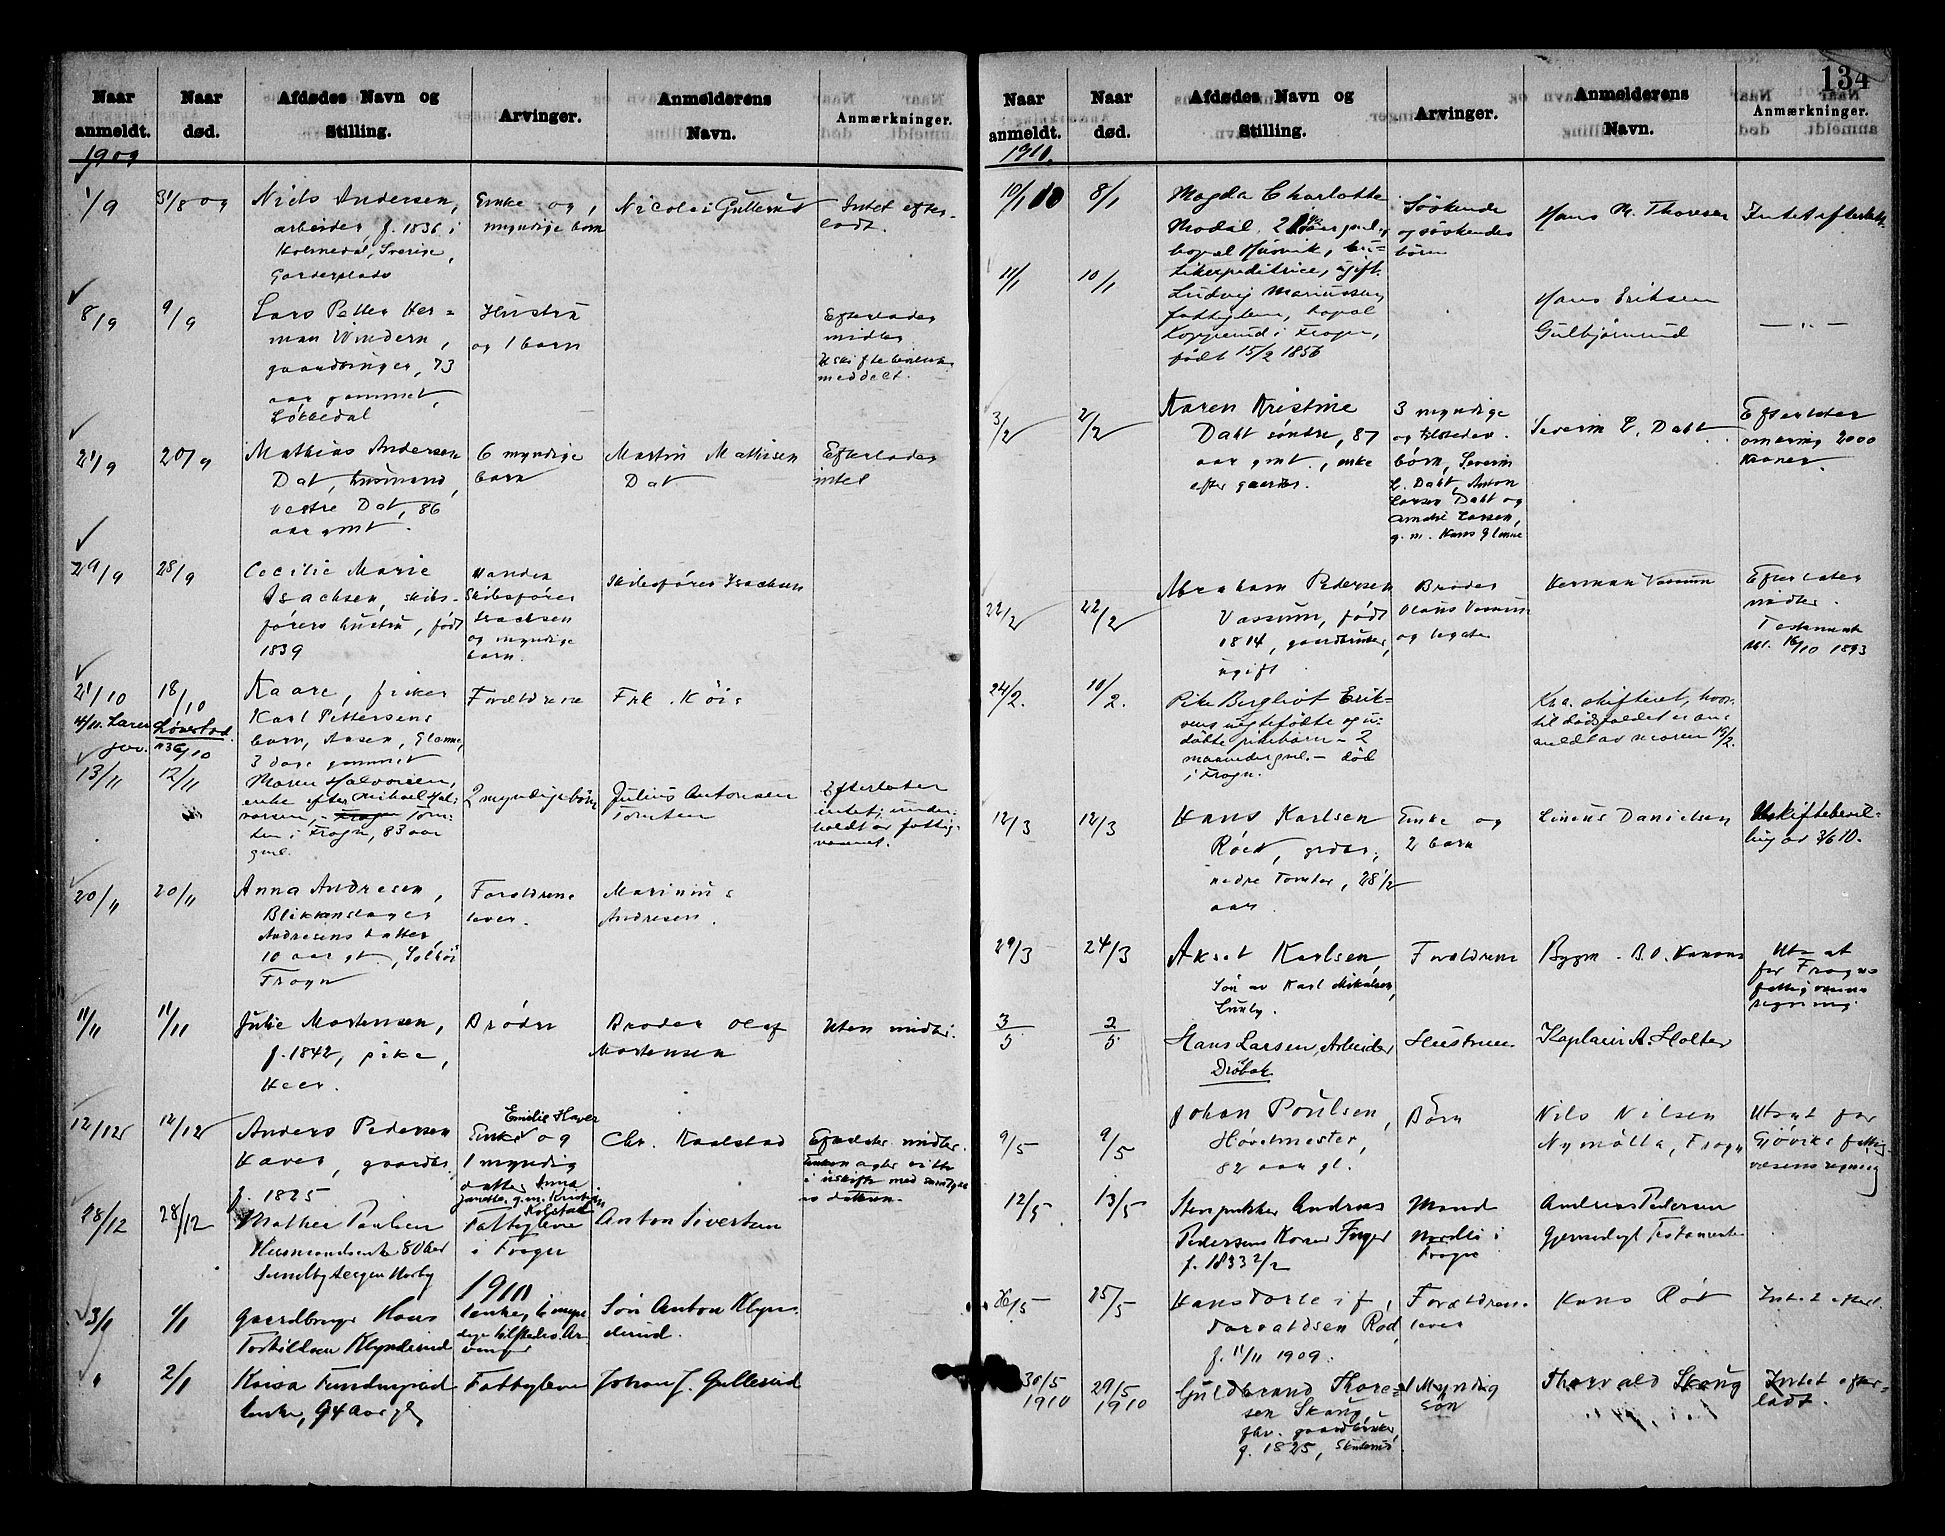 134
Naar anmeldt.
Naar død.
Afdødes Navn og Stilling.
Arvinger.
Anmelderens Navn.
Anmærkninger.
1909
1/9
31/8 09
Niels Andersen,
arbeider, f. 1836 i
Sverige,
Enke og
myndige barn
Nicolai Gullerud
Intet efter-
ladt.
8/9
9/9
Lars Petter Her-
man Vindern,
gaardbruger, 73
aar gammel,
Løkkedal
Hustru
og 1 barn
Efterlader
midler
meddelt.
21/9
20/9
Mathias Andersen
Dal, husmand,
vestre Dal, 86
aar gmt.
6 myndige
barn
Martin Mathisen
Dal
Efterlader
intet
29/9
28/9
Cecilie Marie
Isachsen, skibs-
førers hustru, født
1839
Manden
Skibsfører
Isachsen
og myndige
barn.
Skibsfører Isachsen
21/10
18/10
Kaare, fisker
Karl Pettersens
barn, Aasen, Glenne,
3 dage gammel
Forældrene
Frk. Köis
13/11
12/11
Maren Halvorsen,
enke efter Mikael Hal-
vorsen, Tom-
ten i Frogn, 83 aar
gml.
2 myndige børn
Julius Antonsen
Tomten
Efterlater
intet; under-
holdt av fattig-
væsenet.
20/11
20/11
Anna Andresen,
Blikkenslager
Andresens datter
10 aar gl.
Frogn
Forældrene
lever.
Marinius
Andresen.
11/11
11/11
Julie Mortensen,
f. 1842, pike,
Heer.
Brødre
Broder Olaf
Mortensen
Uten midler.
12/12
12/12
Anders Pedersen
Haver, gaardbr.
f. 1825
Emilie Haver
Enke og
1 myndig
datter Anna
g.m. Kristian
Kolstad
Chr. Kaalstad
Efterlater midler.
i uskifte med samtykke
av datteren.
28/12
28/12
Mathea Paulsen
Husmandsenke 80 aar
Fattiglem
i Frogn
Anton Sivertsen
1910
3/1
1/1
Gaardbruger Hans
Torkildsen Klynderud
Enke, 6 myn-
dige tilstedev. Ar-
vinger
Søn Anton Klyn-
derud.
"
2/1
Kaisa
Enke, 94 aar gl.
Fattiglem
Johan J. Gullerud
Naar anmeldt.
Naar død.
Afdødes Navn og Stilling.
Arvinger.
Anmelderens Navn.
Anmærkninger.
1910.
10/1 10
8/1
Magda Charlotte
Modal,
bopæl Husvik, bu-
tikexpeditrice, ugift.
Søskende
og søskendes
børn
Hans M. Thoresen
Intet efterladt.
11/1
10/1
Ludvig Mariussen,
fattiglem, bopæl
Kopperud i Frogn,
født 15/2 1856
Hans Eriksen
Gulbjørnrud
— " —
3/2
2/2
Karen Kristine
Dahl søndre, 87
aar gmt., enke
efter gaardbr.
3 myndige
og tilstedev.
børn, Severin
L. Dahl, Anton
Larsen Dahl og
Larsen,
g. m. Hans Glenne
Severin L. Dahl
Efterlater
omkring 2000
kroner.
22/2
22/2
Abraham Pedersen
Vassum, født
1814, gaardbruker,
ugift
Broder
Olaus Vassum
og legater
Herman Vassum
Efterlater
midler.
Testament
1893
24/2.
10/2.
Pike Bergliot Erik-
sens uegtefødte og u-
døbte pikebarn – 2
maaneder gml. – død
i Frogn.
Kra. skifteret, hvor-
til dødsfaldet er an-
meldt av moren 15/2.
12/3
12/3
Hans Karlsen
Røed, grdbr.,
nedre Tomter, 28 1/2
aar.
Enke og
2 barn
Linius Danielsen
Uskiftebevil-
ling av 3/6 10.
29/3
24/3
Aksel Karlsen,
Søn av Karl Mikalsen,
Lunby.
Forældrene
Bygm. B.O. Hansen
Utsat
for Frogns
fattigvæsens
regning.
3/5
2/5
Hans Larsen, Arbeider
Drøbak
Hustruen
Kaplain A. Holter
9/5
9/5
Johan Poulsen,
Hovmester,
82 aar gl.
Børn
Nils Nilsen
Nymölla, Frogn
Utsat for
Gjøviks fattig-
væsens regning
12/5
13/5
Stenpukker Andreas
Pedersens Kone
f. 1833 2/2
Mand
Nordli i
Frogn
Andreas Pedersen
Gjensidigt Testamente
26/5
25/5
Hans
Torvaldsen Rød,
f. 11/11 1909.
Forældrene
lever
Hans Röd
Intet efterl.
30/5
1910
29/5
1910
Guldbrand Thore-
sen Skaug,
fhv. gaardbruker,
f. 1825,
1 Myndig
Søn
Thorvald Skaug
Intet efter-
ladt.